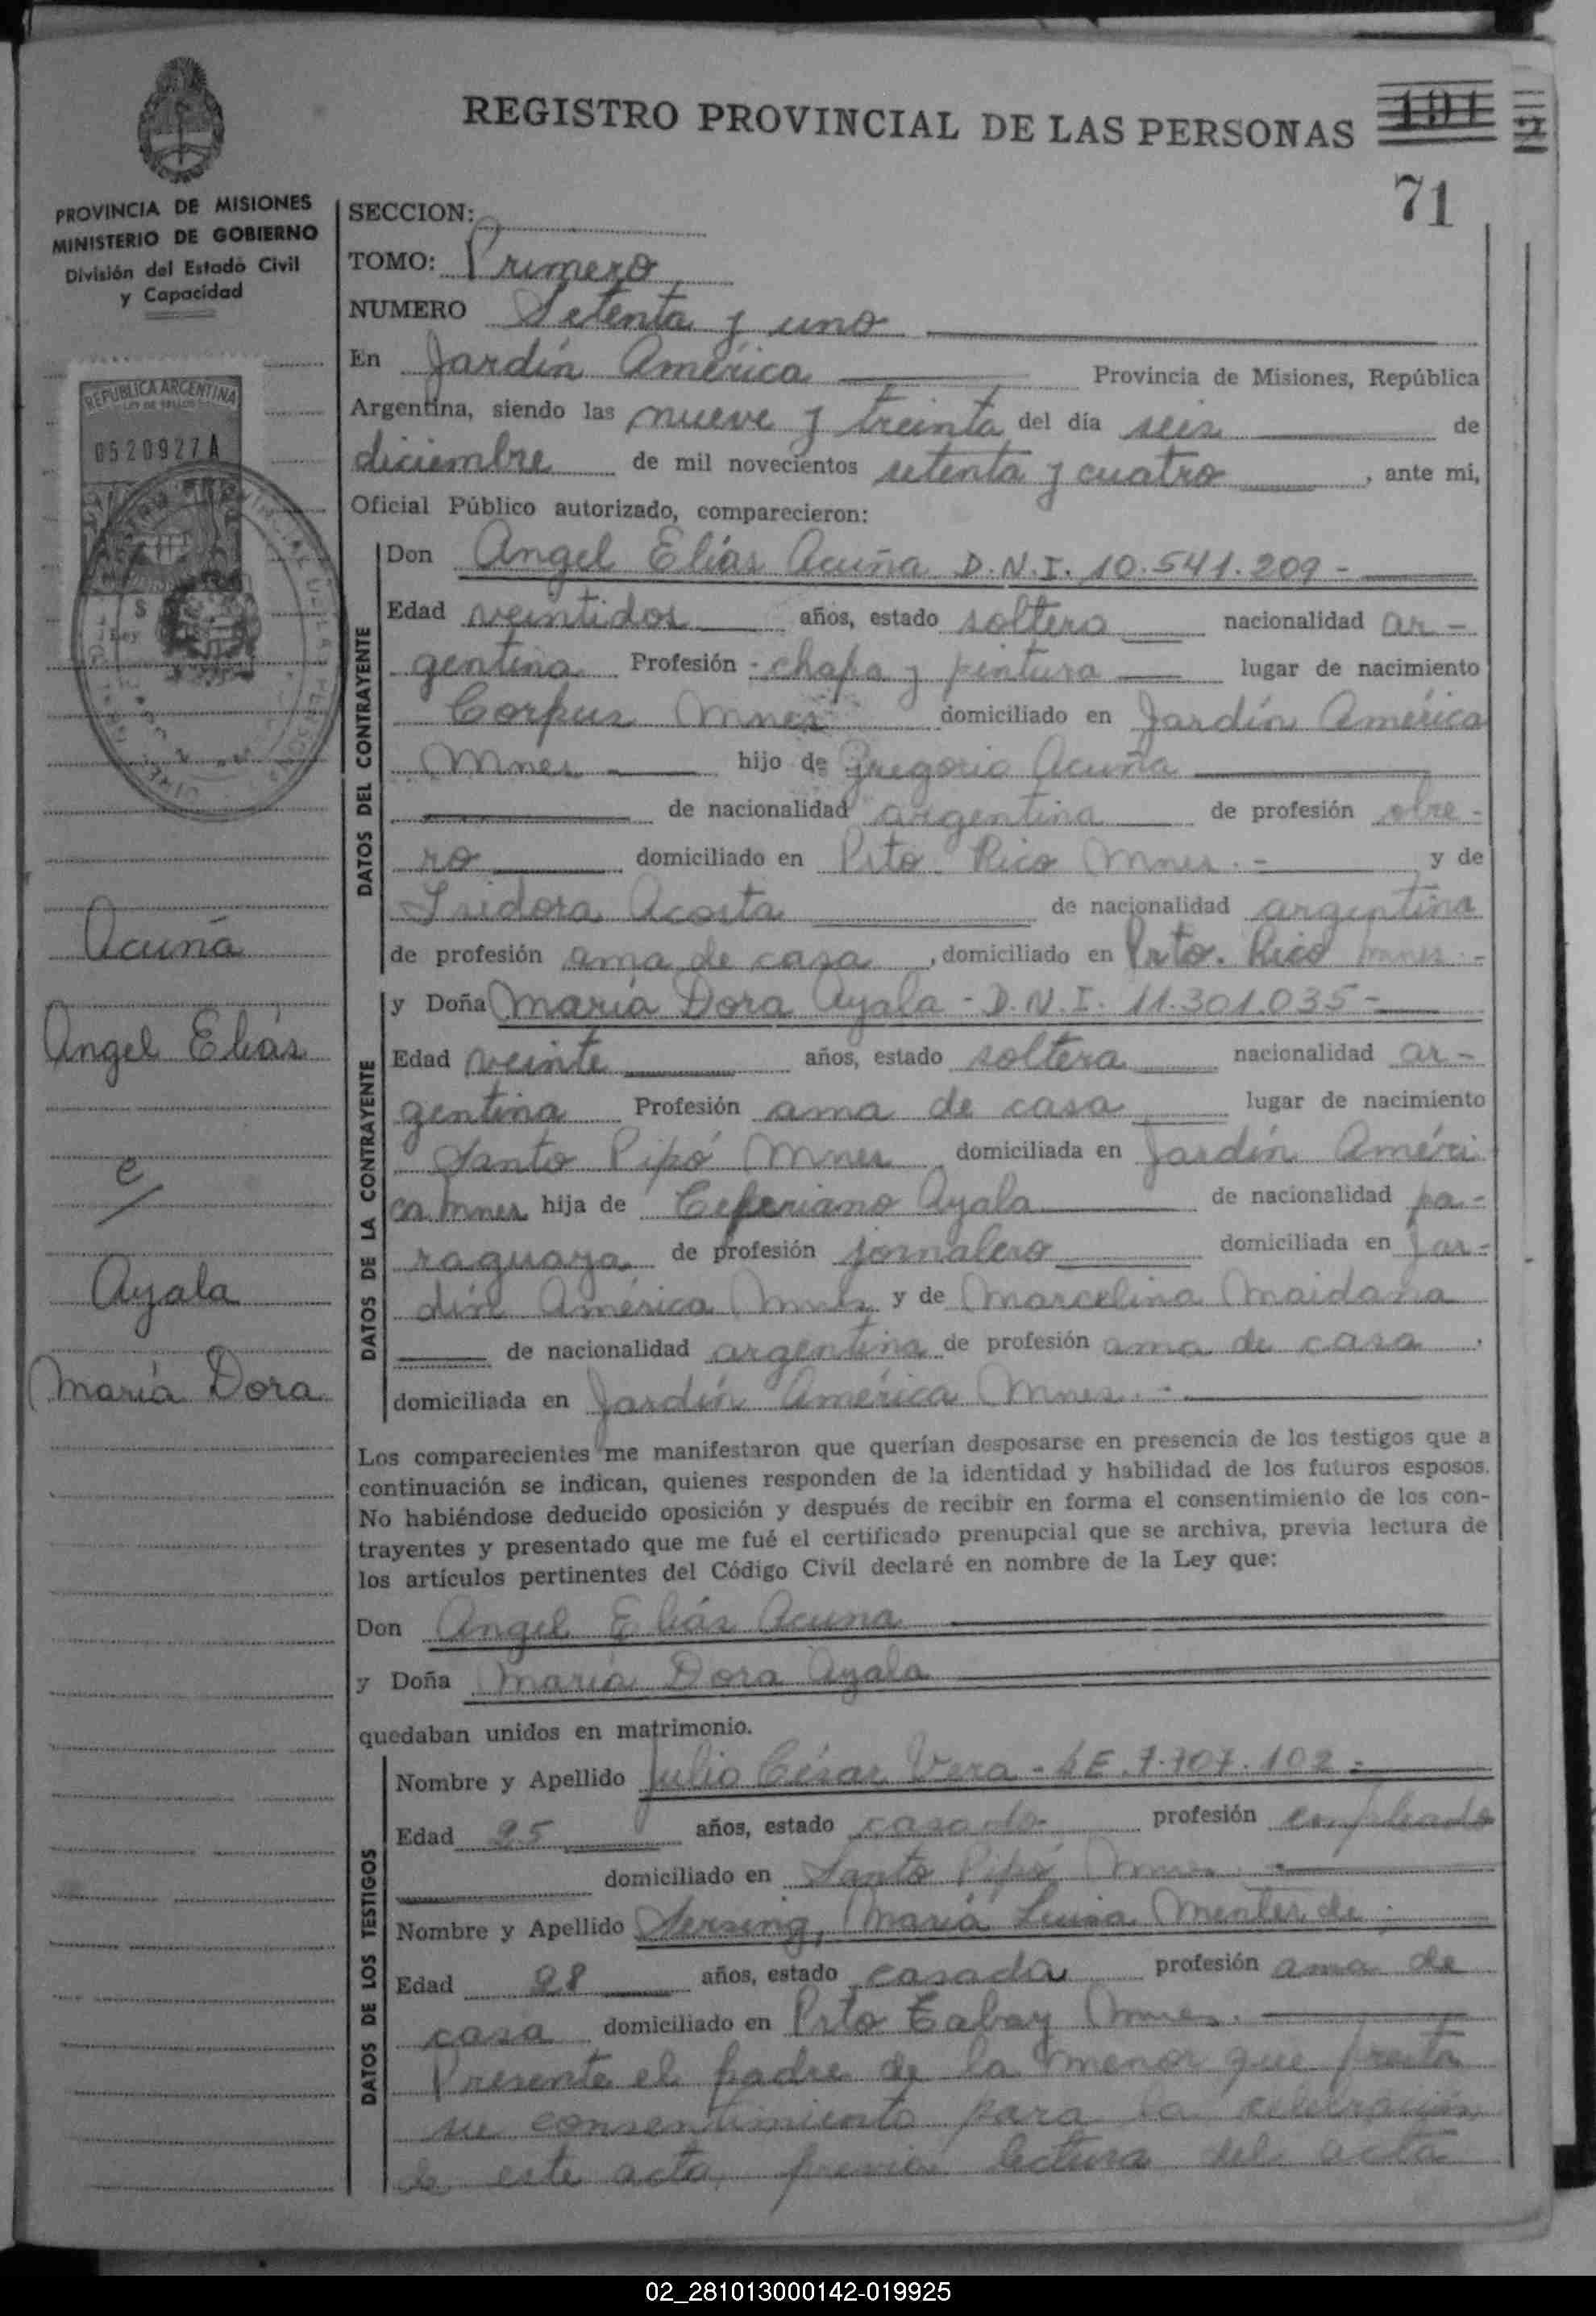 REGISTRO PROVINCIAL DE LAS PERSONAS 191
71
PROVINCIA DE MISIONES
MINISTERIO DE GOBIERNO
División del Estado Civil
y Capacidad
REPUBLICA ARGENTINA
LEY DE SELLOS
0520927A
Acuña
Angel Eliás
c/
Ayala
María Dora
SECCION:
TOMO: Primero
NUMERO Setenta y uno
En Jardín América Provincia de Misiones, República
Argentina, siendo las nueve y treinta del día seis de
diciembre de mil novecientos setenta y cuatro, ante mi,
Oficial Público autorizado, comparecieron:
DATOS DEL CONTRAYENTE
Don Angel Elías Acuña D.N.I. 10.541.209-
Edad veintidos años, estado soltero nacionalidad ar-
gentina Profesión - chapa y pintura lugar de nacimiento
Corpus Mnes domiciliado en Jardín América
Mnes hijo de Gregorio Acuña
de nacionalidad argentina de profesión obre-
ro domiciliado en Prto. Rico Mnes.- y de
Isidora Acosta de nacionalidad argentina
de profesión ama de casa, domiciliado en Prto. Rico Mnes.-
DATOS DE LA CONTRAYENTE
y Doña María Dora Ayala - D.N.I. 11.301.035-
Edad veinte años, estado soltera nacionalidad ar-
gentina Profesión ama de casa lugar de nacimiento
Santo Pipó Mnes domiciliada en Jardín Améri
ca Mnes hija de Ceferiano Ayala de nacionalidad pa-
raguaya de profesión jornalero domiciliada en Jar-
dín América Mnes y de Marcelina Maidana
de nacionalidad argentina de profesión ama de casa.
domiciliada en Jardín América Mnes.-
Los comparecientes me manifestaron que querían desposarse en presencia de los testigos que a
continuación se indican, quienes responden de la identidad y habilidad de los futuros esposos.
No habiéndose deducido oposición y después de recibir en forma el consentimiento de los con-
trayentes y presentado que me fué el certificado prenupcial que se archiva, previa lectura de
los artículos pertinentes del Código Civil declaré en nombre de la Ley que:
Don Angel Eliás Acuña
y Doña María Dora Ayala
quedaban unidos en matrimonio.
DATOS DE LOS TESTIGOS
Nombre y Apellido Julio César Vera - LE. 7.707.102-
Edad 25 años, estado casado profesión empleado
domiciliado en Santo Pipó Mnes.
Nombre y Apellido Sersing, María Luisa Mentes de.
Edad 28 años, estado casada profesión ama de
casa domiciliado en Prto Tabay Mnes.
Presente el padre de la menor que presta
su consentimiento para la celebración
de este acto, previa lectura del acta
02_281013000142-019925